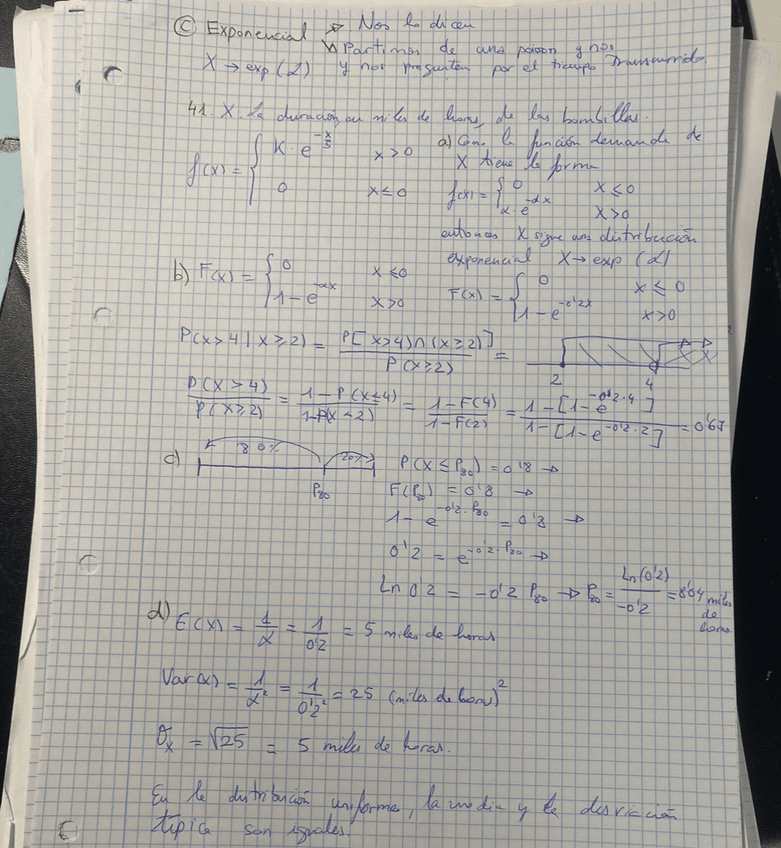 Ⓒ Exponencial → Nos lo dicen
↘ Partimos de una poisson y nos
X → exp (α) y nos preguntan por el tiempo transcurrido
41. X. La duración, en miles de horas, de las bombillas.
f(x) = { K · e^(-x/5) x > 0
0 x ≤ 0
a) Como la función demanda de
X tiene la forma
f(x) = { 0 x ≤ 0
α · e^(-αx) x > 0
entonces X sigue una distribución
exponencial X → exp (α)
b) F(x) = { 0 x ≤ 0
1 - e^(-αx) x > 0
F(x) = { 0 x ≤ 0
1 - e^(-0'2x) x > 0
P(x > 4 | x ≥ 2) = P[x > 4) ∩ (x ≥ 2)] / P(x ≥ 2) =
2 4
P(x > 4) / P(x ≥ 2) = 1 - P(x ≤ 4) / 1 - P(x < 2) = 1 - F(4) / 1 - F(2) = 1 - [1 - e^(-0'2·4)] / 1 - [1 - e^(-0'2·2)] = 0'67
c) 80% 20% P80
P(X ≤ P80) = 0'8 →
F(P80) = 0'8 →
1 - e^(-0'2·P80) = 0'8 →
0'2 = e^(-0'2·P80) →
Ln 0'2 = -0'2 P80 → P80 = Ln(0'2) / -0'2 = 8'04 miles de horas
d) E(X) = 1/α = 1/0'2 = 5 miles de horas
Var(x) = 1/α² = 1/0'2² = 25 (miles de horas)²
σx = √25 = 5 miles de horas.
En la distribución uniforme, la media y la desviación
típica son iguales.